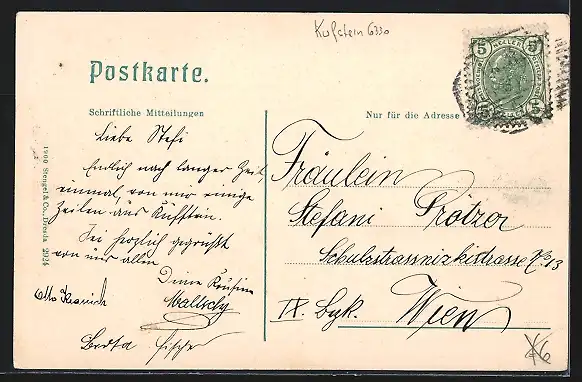 Kufstein 6330
5 HELLER 5
Postkarte.
Schriftliche Mitteilungen
Nur für die Adresse
Liebe Stefi
Endlich nach langer Zeit,
einmal, von mir einige
Zeilen aus Kufstein.
Sei herzlich gegrüßt
von uns allen
Deine Cousine
Otto
Berta Fischer
Fräulein
Stefani
No 13
IX. Bzk. Wien
1900 Stengel & Co., Dresda 2924